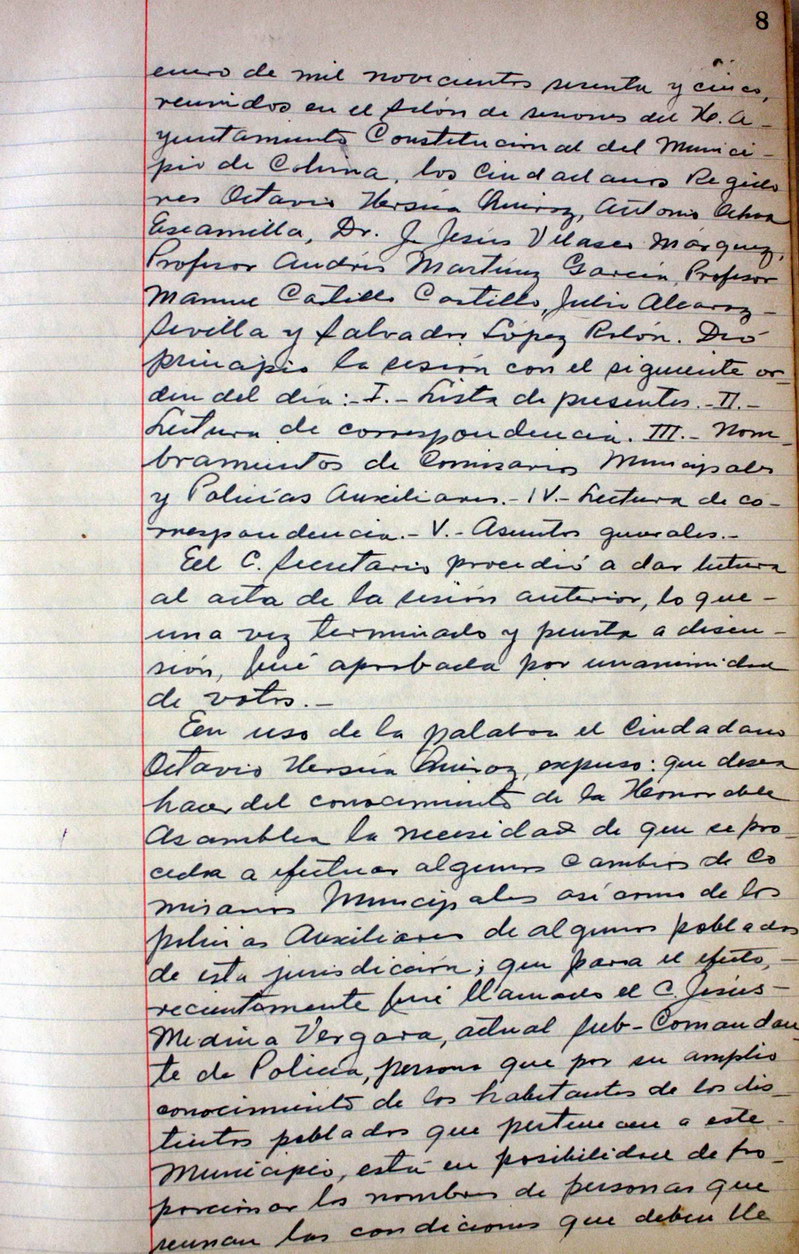 8
enero de mil novecientos sesenta y cinco,
reunidos en el salón de sesiones del H. A-
yuntamiento Constitucional del Munici-
pio de Colima, los Ciudadanos Regido
res Octavio Urzúa Quiroz, Antonio Ochoa
Escamilla, Dr. J. Jesús Velasco Márquez,
Profesor Andrés Martínez García, Profesor
Manuel Castillo Castillo, Julio Alcaraz-
Sevilla y Salvador López Rolón. Dió
principio la sesión con el siguiente or-
den del día:- I.- Lista de presentes.- II.-
Lectura de correspondencia. III.- Nom-
bramientos de Comisarios Municipales
y Policías Auxiliares.- IV.- Lectura de co-
rrespondencia.- V.- Asuntos generales.-
El C. Secretario procedió a dar lectura
al acta de la sesión anterior, lo que-
una vez terminado y puesta a discu-
sión, fué aprobada por unanimidad
de votos.-
En uso de la palabra el Ciudadano
Octavio Urzúa Quiroz, expuso: que desea
hacer del conocimiento de la Honorable
Asamblea la necesidad de que se pro-
ceda a efectuar algunos cambios de Co
misarios Municipales así como de los
policías Auxiliares de algunos poblados
de esta jurisdicción; que para el efecto,-
recientemente fué llamado el C. Jesús-
Medina Vergara, actual Sub-Comandan-
te de Policía, persona que por su amplio
conocimiento de los habitantes de los dis-
tintos poblados que pertenecen a este-
Municipio, está en posibilidad de pro-
porcionar los nombres de personas que
reunan las condiciones que deben lle